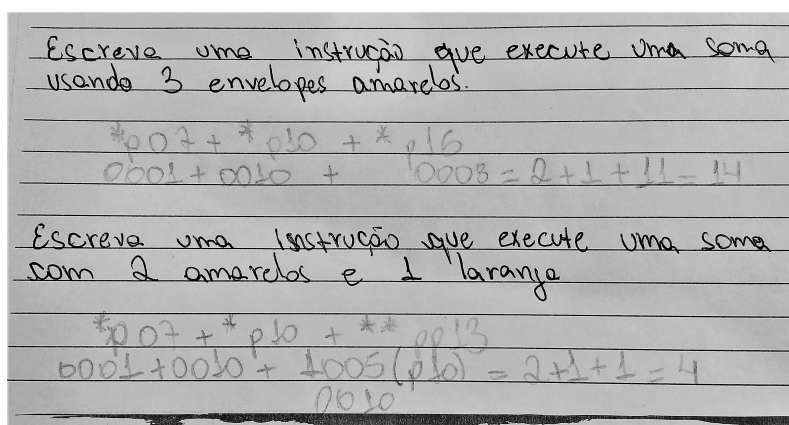 Escreva uma instrução que execute uma soma
usando 3 envelopes amarelos.
*p07 + *p10 + *p16
0001 + 0010 + 0008 = 2+1+11 = 14
Escreva uma instrução que execute uma soma
com 2 amarelos e 1 laranja
*p07 + *p10 + **pp13
0001 + 0010 + 1005 (p10) = 2+1+1 = 4
0010